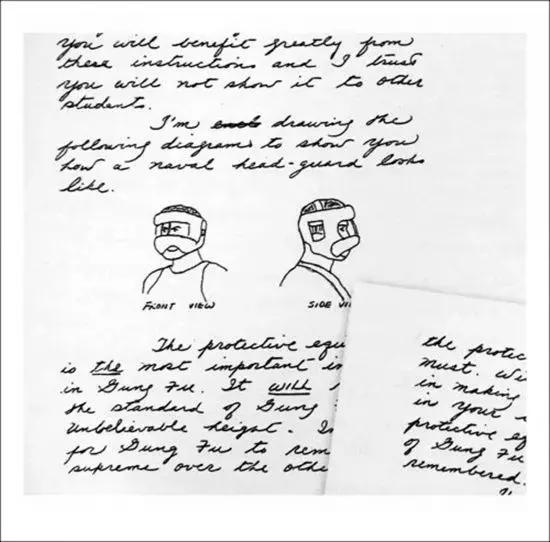 you will benefit greatly from
these instructions and I trust
you will not show it to other
students.
I'm drawing the
following diagrams to show you
how a naval head-guard looks
like.
FRONT VIEW
SIDE VI
The protective equ
is the most important i
in Gung Fu. It will
the standard of Gung
unbelievable height.
for Gung Fu to rem
supreme over the othe
the protec
must. Wi
in making
in your
protective eq
of Gung Fu
remembered.